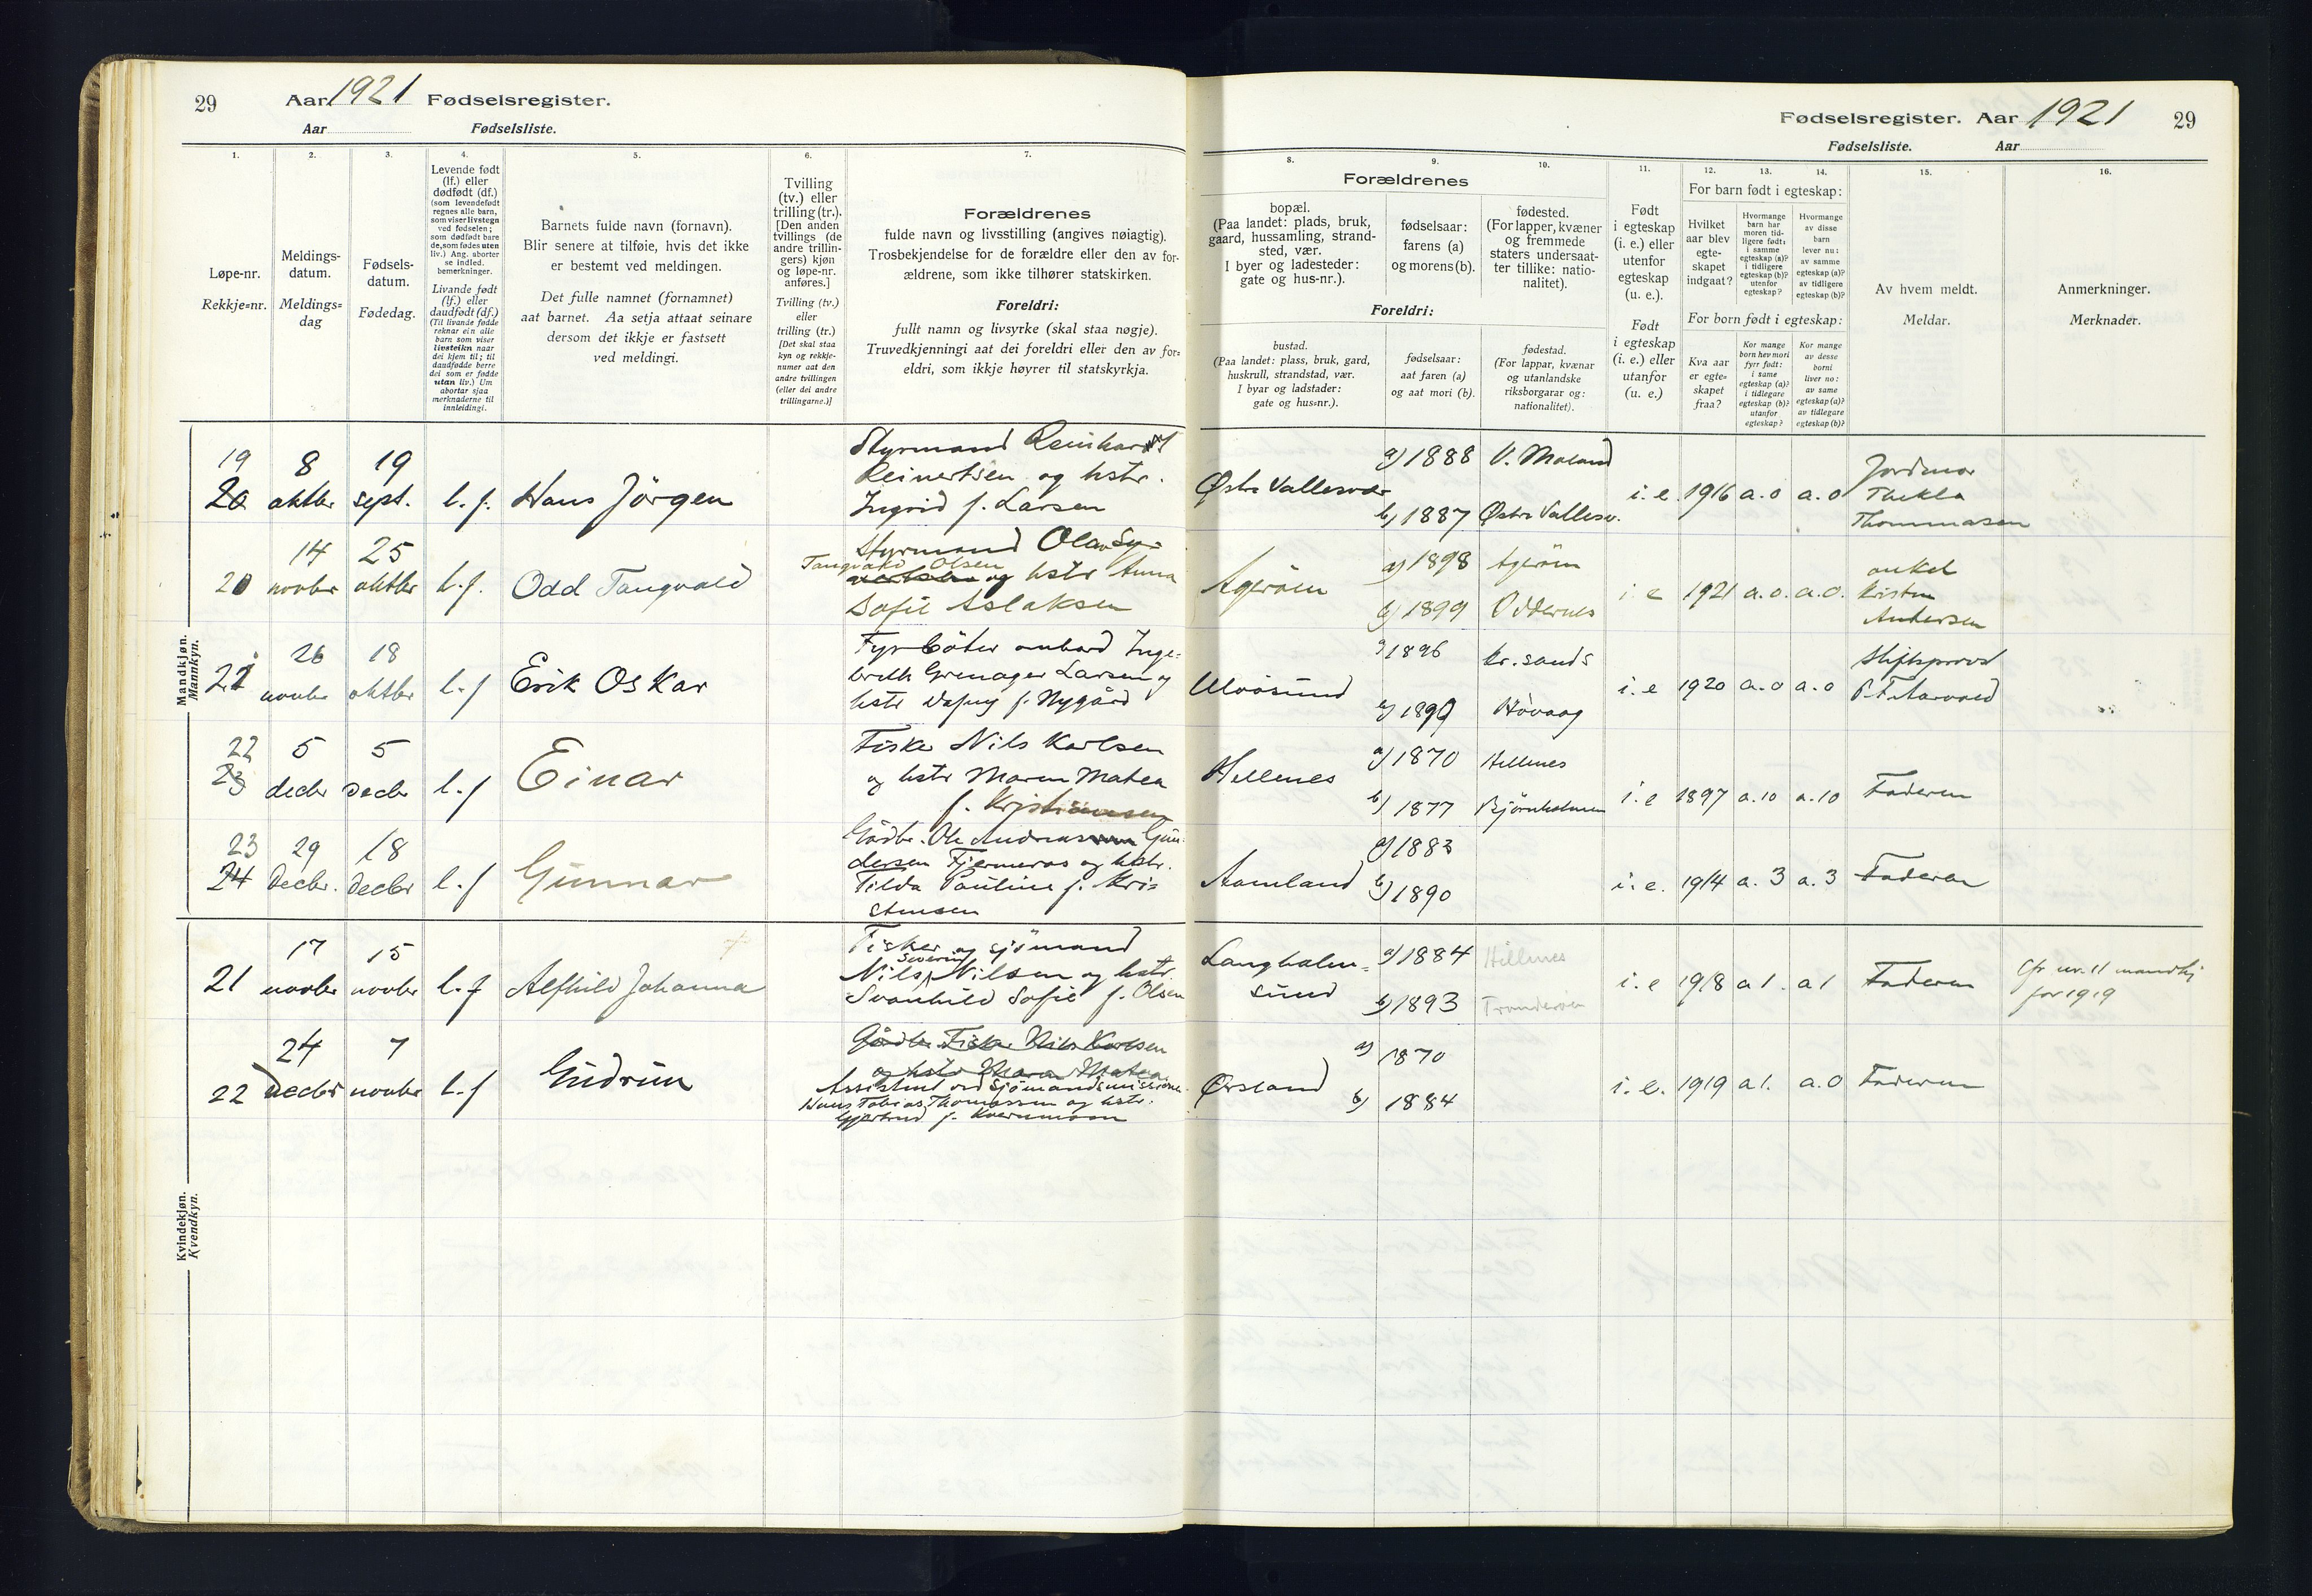 29 Aar 1921 Fødselsregister.
Aar Fødselsliste.
1. 2. 3. 4. 5. 6. 7.
Løpe-nr.
Rekkje=nr.
Meldings-
datum.
Meldings=
dag
Fødsels-
datum.
Fødedag.
Levende født
(lf.) eller
dødfødt (df.)
(som levendefødt
regnes alle barn,
som viser livstegn
ved fødselen;
som dødfødt bare
de, som fødes uten
liv.) Ang. aborter
se indled.
bemerkninger.
Livande født
(lf.) eller
daudfødt (df.)
(Til livande fødde
reknar ein alle
barn som viser
livsteikn naar
dei kjem til; til
daudfødde berre
dei som er fødde
utan liv.) Um
abortar sjaa
merknaderne til
innleidingi.
Barnets fulde navn (fornavn).
Blir senere at tilføie, hvis det ikke
er bestemt ved meldingen.
Det fulle namnet (fornamnet)
aat barnet. Aa setja attaat seinare
dersom det ikkje er fastsett
ved meldingi.
Tvilling
(tv.) eller
trilling (tr.).
[Den anden
tvillings (de
andre trillin-
gers) kjøn
og løpe-nr.
anføres.]
Tvilling (tv.)
eller
trilling (tr.)
[Det skal staa
kyn og rekkje-
numer aat den
andre tvillingen
(eller dei andre
trillingarne.)]
Forældrenes
fulde navn og livsstilling (angives nøiagtig).
Trosbekjendelse for de forældre eller den av for-
ældrene, som ikke tilhører statskirken.
Foreldri:
fullt namn og livsyrke (skal staa nøgje).
Truvedkjenningi aat dei foreldri eller den av for=
eldri, som ikkje høyrer til statskyrkja.
Fødselsregister. Aar 1921 29
Fødselsliste. Aar
8. 9. 10. 11. 12. 13. 14. 15. 16.
Forældrenes
bopæl.
(Paa landet: plads, bruk,
gaard, hussamling, strand-
sted, vær.
I byer og ladesteder:
gate og hus-nr.).
fødselsaar:
farens (a)
og morens (b).
fødested.
(For lapper, kvæner
og fremmede
staters undersaat-
ter tillike: natio-
nalitet).
Foreldri:
bustad.
(Paa landet: plass, bruk, gard,
huskrull, strandstad, vær.
I byar og ladstader:
gate og hus=nr.).
fødselsaar:
aat faren (a)
og aat mori (b).
fødestad.
(For lappar, kvænar
og utanlandske
riksborgarar og:
nationalitet).
Født
i egteskap
(i. e.) eller
utenfor
egteskap
(u. e.).
Født
i egteskap
(i. e.) eller
utanfor
(u. e.)
For barn født i egteskap:
Hvilket
aar blev
egte-
skapet
indgaat?
Hvormange
barn har
moren tid-
ligere født:
i samme
egteskap (a)?
i tidligere
egteskap (b)?
utenfor
egteskap?
Hvormange
av disse
barn
lever nu:
av samme
egteskap (a)?
av tidligere
egteskap (b)?
For born født i egteskap:
Kva aar
er egte=
skapet
fraa?
Kor mange
born hev mori
fyrr født:
i same
egteskap (a)?
i tidlegare
egteskap (b)?
utanfor
egteskap?
Kor mange
av desse
borni
liver no:
av same
egteskap (a)?
av tidlegare
egteskap (b)?
Av hvem meldt.
Meldar.
Anmerkninger.
Merknader.
Mandkjøn.
Mannkyn.
19 20 8 oktbr 19 sept. l. f. Hans Jörgen
Styrmand Reinhardt
Reinertsen og hstr.
Ingrid f. Larsen
Østre Vallesvær a) 1888 V. Moland
b) 1887 Østre Vallesv.
i. e 1916 a. 0 a. 0
Jordmor
Thekla
Thommasen
20 14 novbr 25 oktbr l. f. Odd Tangvald
Styrmand Olav Sy=
Tangvald Olsen
og hstr Anna
Sofie Aslaksen
Agerøen a) 1898 Agerøen
b) 1899 Oddernes
i. e 1921 a. 0. a. 0.
onkel
Kristen
Andersen
21 26 novbr 18 oktbr l. f Erik Oskar
Fyrböter ombord Inge=
breth Grenager Larsen og
hstr Dagny f. Nygård
Ulvösund a) 1896 Kr. sands
b) 1890 Høvaag
i. e 1920 a. 0 a. 0
Stiftsprovst
P. F. Aarvold
22 23 5 decbr 5 decbr l. f Einar
Fisker Nils Karlsen
og hstr Maren Matea
f. Kristiansen
Hellenes a) 1870 Hellenes
b) 1877 Bjørnholmen
i. e 1897 a. 10 a. 10 Faderen
23 24 29 Decbr. 18 decbr l. f Gunnar
Gårdbr. Ole Andreas Gun-
dersen Fjermeros og hstr.
Tilda Pauline f. Kri=
stensen
Aamland a) 1883
b) 1890
i. e. 1914 a. 3 a. 3 Faderen
Kvindekjøn.
Kvendkyn.
21 17 novbr 15 novbr l. f Alfhild Johanna
Fisker og sjömand
Severin
Nils Nilsen og hstr.
Svanhild Sofie f. Olsen
Langholm=
sund
a) 1884 Hellenes
b) 1893
i. e 1918 a 1. a 1 Faderen
Cfr nr. 11 mandkj
for 1919
22 24 decbr 7 novbr l. f Gudrun
Gårdbr. Fisker Nils Karlsen
og hstr Maren Matea
Assistent ved Sjömandsmissionen
Hans Tobias Thomassen og hstr.
Gjertrud f. Kvernmoen
Ørsland a) 1870
b) 1884
i. e. 1919 a 1. a. 0 Faderen